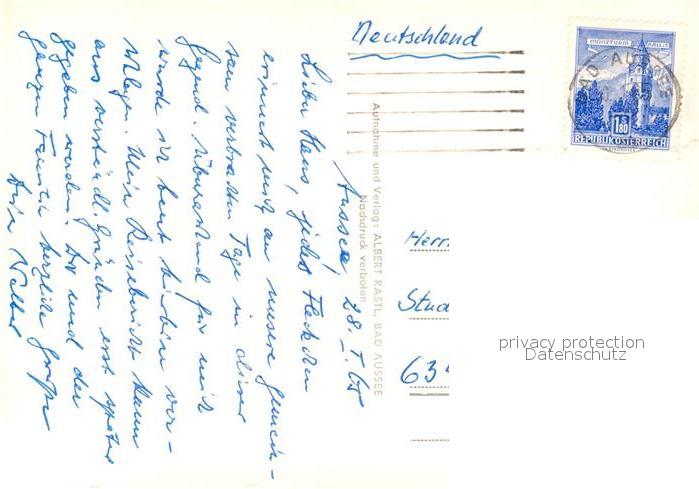 Deutschland
MÜNZTURM HALL i.T.
BAD AUSSEE
1.80
REPUBLIK ÖSTERREICH
Aufnahme und Verlag: ALBERT RASTL, BAD AUSSEE
Nachdruck verboten
Aussee, 28. I. 65
Lieber Hans, jedes Fleckchen
erinnert mich an unsere gemein-
sam verbrachten Tage in dieser
Gegend. für mich
wurde ich heut hierher ver-
Mein Reisebericht kann
aus verständl. Gründen erst später
gegeben werden. Dir und der
ganzen Familie herzliche Grüße
Dein Walter
Herrn
Stud
634
privacy protection
Datenschutz